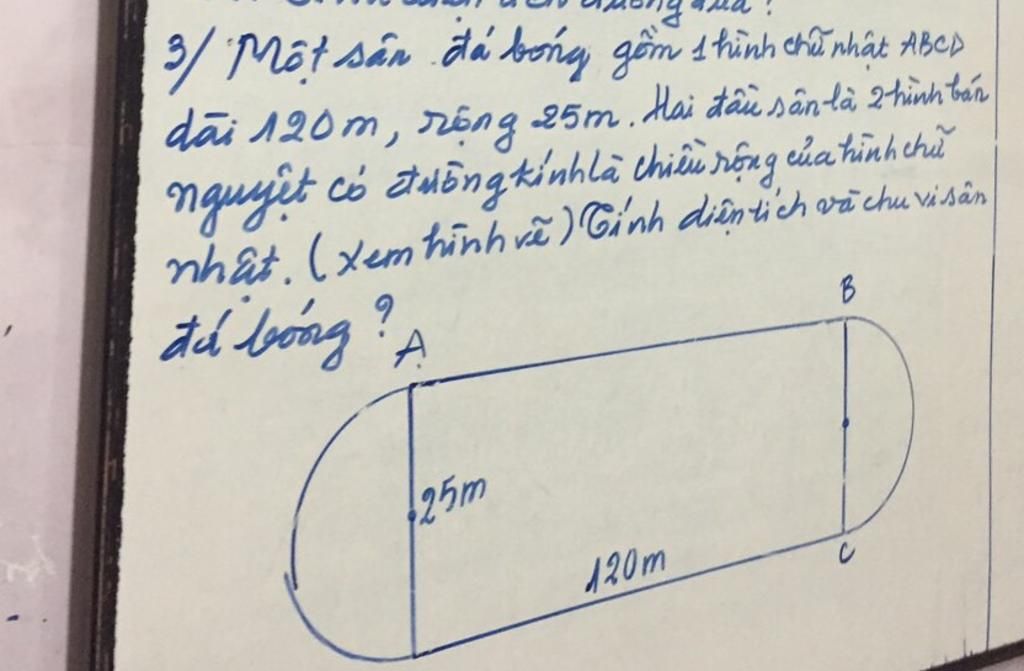 3/ Một sân đá bóng gồm 1 hình chữ nhật ABCD
dài 120m, rộng 25m. Hai đầu sân là 2 hình bán
nguyệt có đường kính là chiều rộng của hình chữ
nhật. (xem hình vẽ) Tính diện tích và chu vi sân
đá bóng ?
B
A
25m
120m
C